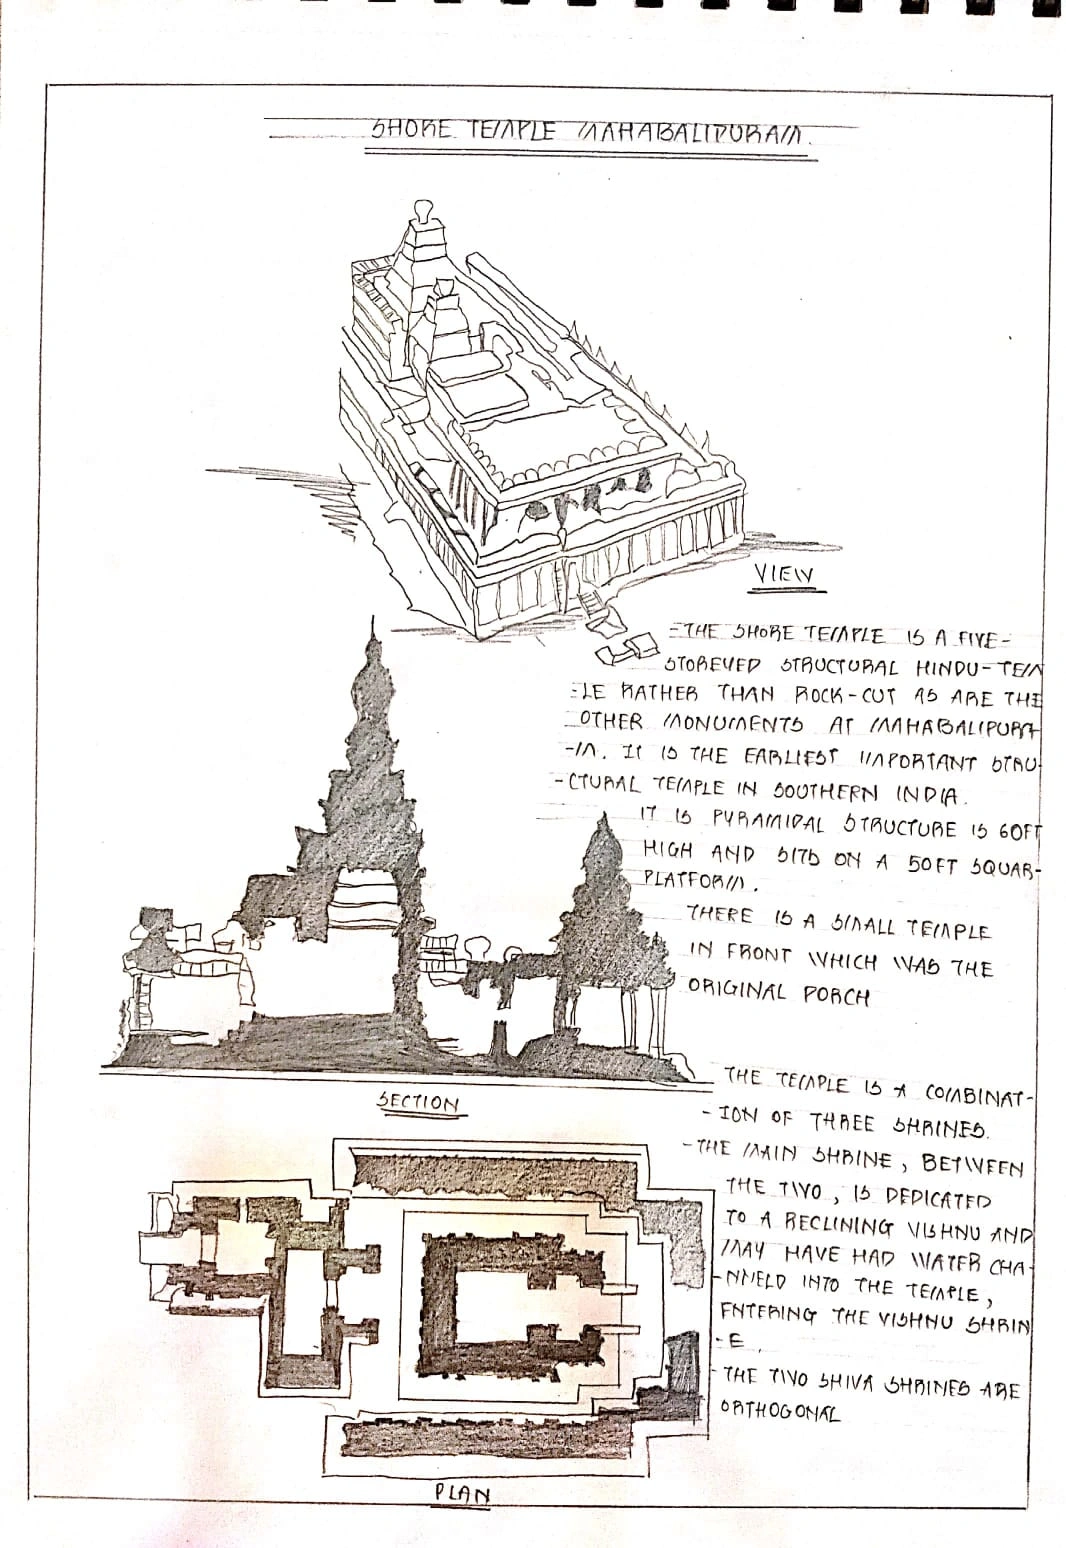 SHORE TEMPLE MAHABALIPURAM.
VIEW
-THE SHORE TEMPLE IS A FIVE-
STOREYED STRUCTURAL HINDU-TEM
-LE RATHER THAN ROCK-CUT AS ARE THE
OTHER MONUMENTS AT MAHABALIPURA
-M. IT IS THE EARLIEST IMPORTANT STRU-
-CTURAL TEMPLE IN SOUTHERN INDIA.
IT IS PYRAMIDAL STRUCTURE IS 60FT
HIGH AND SITS ON A 50FT SQUAR-
PLATFORM.
THERE IS A SMALL TEMPLE
IN FRONT WHICH WAS THE
ORIGINAL PORCH
SECTION
THE TEMPLE IS A COMBINAT-
-ION OF THREE SHRINES.
-THE MAIN SHRINE, BETWEEN
THE TWO, IS DEDICATED
TO A RECLINING VISHNU AND
MAY HAVE HAD WATER CHA-
-NNELD INTO THE TEMPLE,
ENTERING THE VISHNU SHRIN
-E.
-THE TWO SHIVA SHRINES ARE
ORTHOGONAL
PLAN